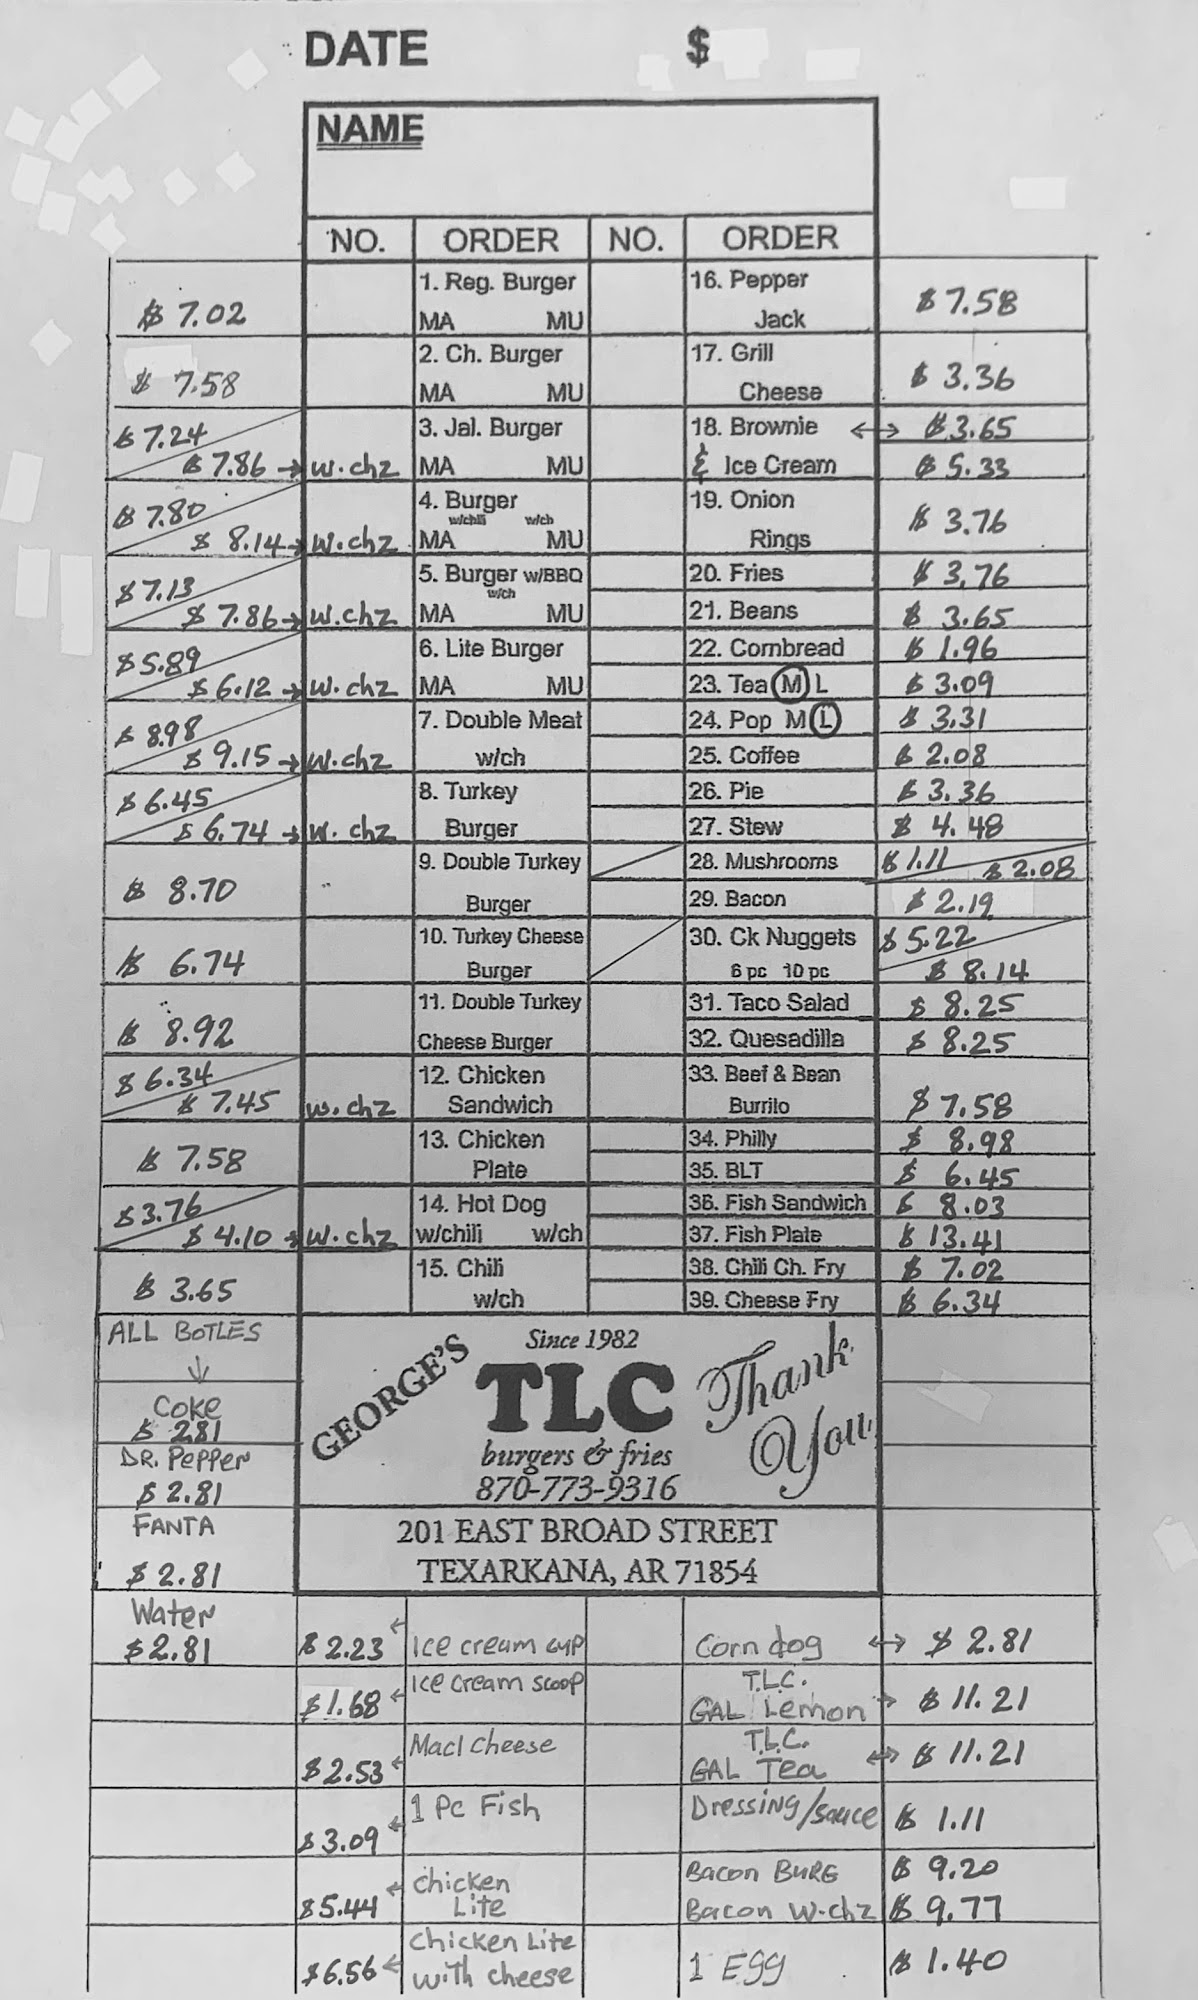 DATE $
NAME
NO. ORDER NO. ORDER
$ 7.02 1. Reg. Burger MA MU 16. Pepper Jack $ 7.58
$ 7.58 2. Ch. Burger MA MU 17. Grill Cheese $ 3.36
$ 7.24 3. Jal. Burger 18. Brownie ↔ $ 3.65
$ 7.86 → w.chz MA MU & Ice Cream $ 5.33
$ 7.80 4. Burger w/chili w/ch 19. Onion
$ 8.14 → w.chz MA MU Rings $ 3.76
$ 7.13 5. Burger w/BBQ w/ch 20. Fries $ 3.76
$ 7.86 → w.chz MA MU 21. Beans $ 3.65
$ 5.89 6. Lite Burger 22. Cornbread $ 1.96
$ 6.12 → w.chz MA MU 23. Tea M L $ 3.09
$ 8.98 7. Double Meat 24. Pop M L $ 3.31
$ 9.15 → w.chz w/ch 25. Coffee $ 2.08
$ 6.45 8. Turkey 26. Pie $ 3.36
$ 6.74 → w.chz Burger 27. Stew $ 4.48
$ 8.70 9. Double Turkey 28. Mushrooms $ 1.11 $ 2.08
Burger 29. Bacon $ 2.19
$ 6.74 10. Turkey Cheese 30. Ck Nuggets $ 5.22
Burger 6 pc 10 pc $ 8.14
$ 8.92 11. Double Turkey 31. Taco Salad $ 8.25
Cheese Burger 32. Quesadilla $ 8.25
$ 6.34 12. Chicken 33. Beef & Bean
$ 7.45 w.chz Sandwich Burrito $ 7.58
$ 7.58 13. Chicken 34. Philly $ 8.98
Plate 35. BLT $ 6.45
$ 3.76 14. Hot Dog 36. Fish Sandwich $ 8.03
$ 4.10 → w.chz w/chili w/ch 37. Fish Plate $ 13.41
$ 3.65 15. Chili 38. Chili Ch. Fry $ 7.02
w/ch 39. Cheese Fry $ 6.34
ALL BOTLES
↓
Coke
$ 2.81
DR. Pepper
$ 2.81
FANTA
$ 2.81
Water
$ 2.81
GEORGE'S
Since 1982
TLC
burgers & fries
870-773-9316
Thank You
201 EAST BROAD STREET
TEXARKANA, AR 71854
$ 2.23 ← Ice cream cup Corn dog ↔ $ 2.81
$ 1.68 ← Ice cream scoop T.L.C. GAL Lemon → $ 11.21
$ 2.53 ← Macl Cheese T.L.C. GAL Tea ↔ $ 11.21
$ 3.09 ← 1 Pc Fish Dressing/sauce $ 1.11
$ 5.44 ← Chicken Lite Bacon BURG $ 9.20
Bacon W.chz $ 9.77
$ 6.56 ← Chicken Lite with cheese 1 Egg $ 1.40